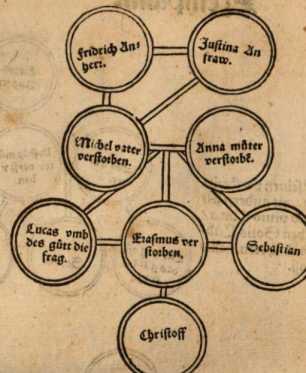 Fridrich An⸗
herr.
Justina An
fraw.
Michel vater
verstorben.
Anna můter
verstorbẽ.
Lucas vmb
des gůtt die
frag.
Erasmus ver
storben.
Sebastian
Christoff